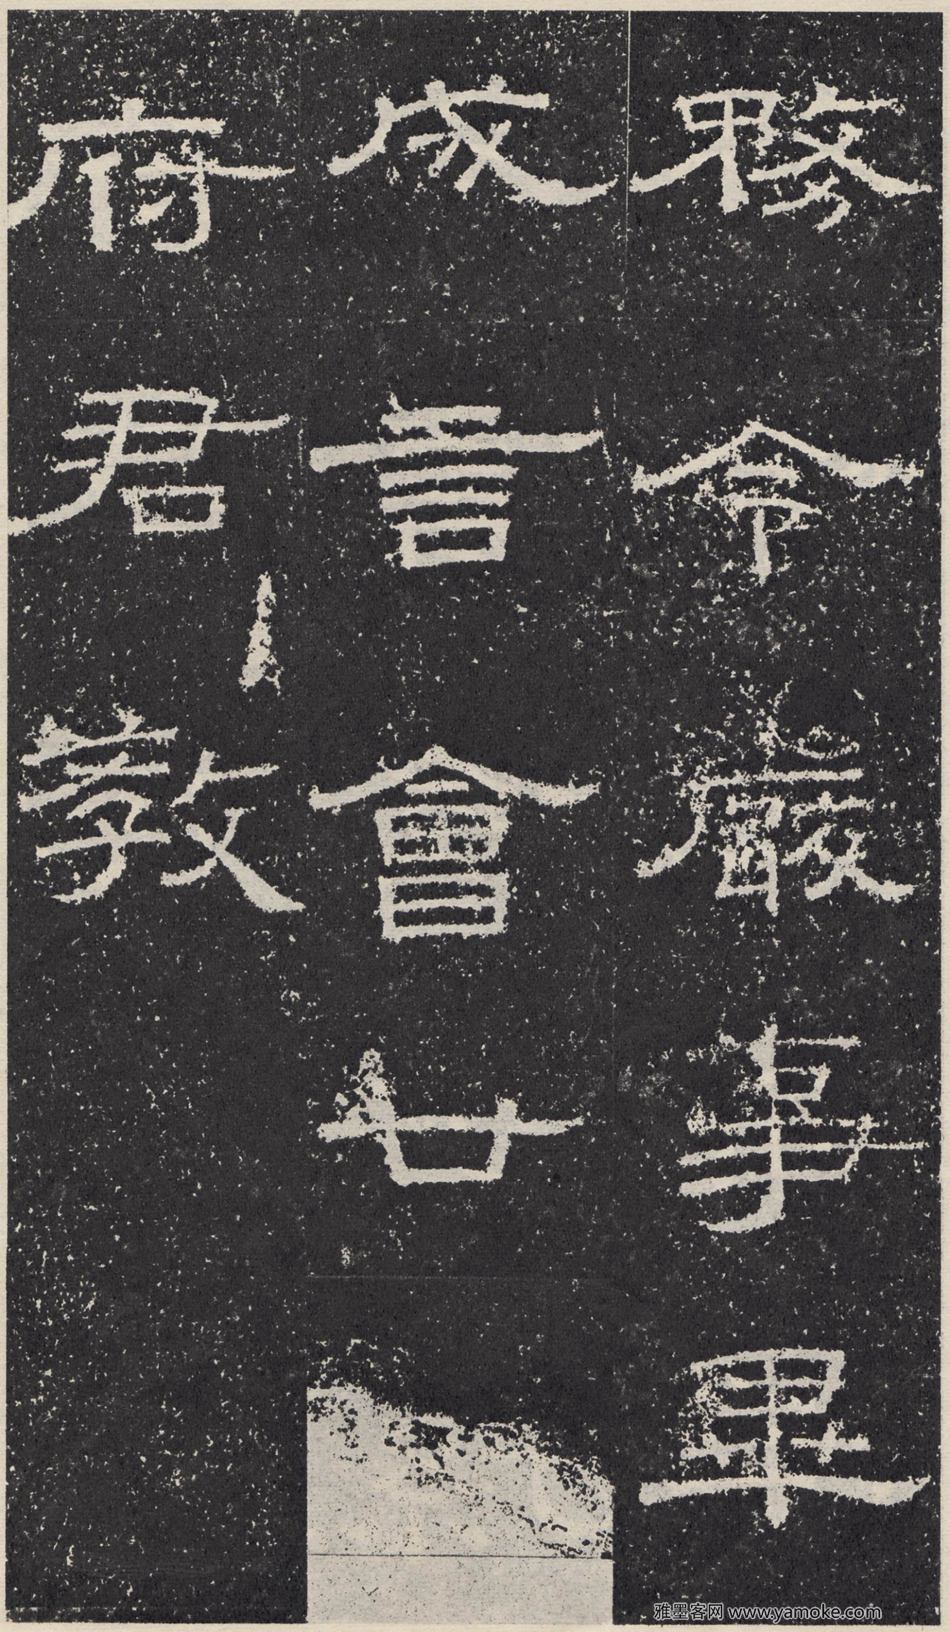 務令嚴事畢
成言會廿
府君敎
雅墨客网 www.yamoke.com